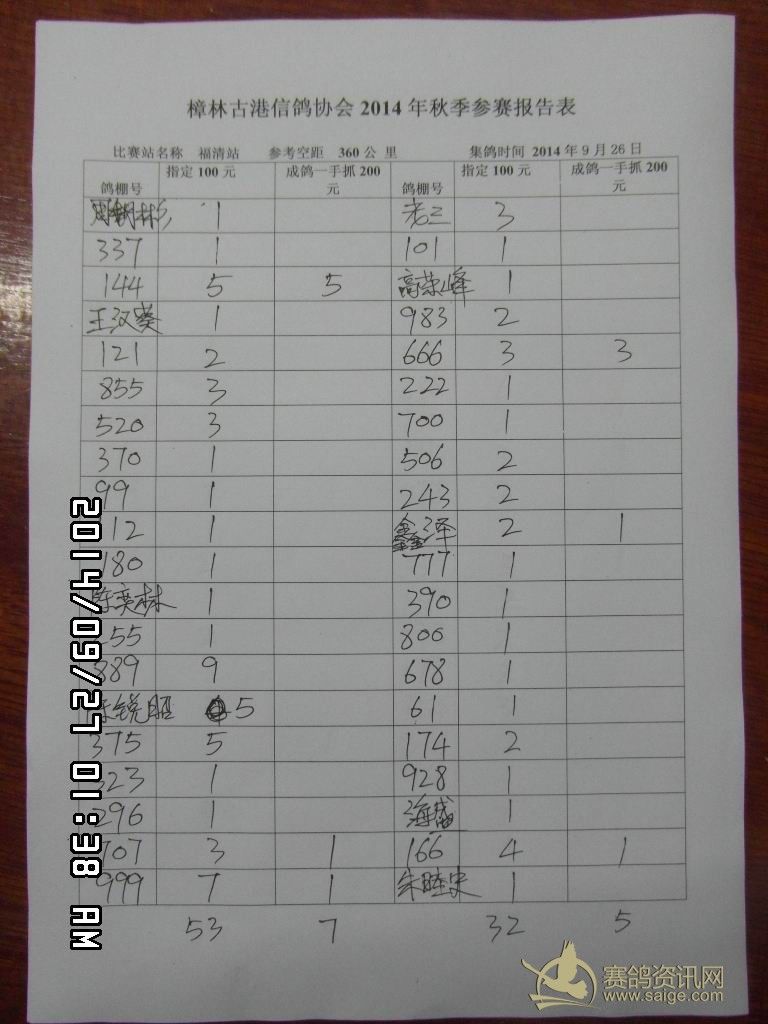 樟林古港信鸽协会 2014 年秋季参赛报告表
比赛站名称 福清站 参考空距 360 公 里 集鸽时间 2014 年 9 月 26 日
鸽棚号 指定 100 元 成鸽一手抓 200 元 鸽棚号 指定 100 元 成鸽一手抓 200 元
1 老三 3
337 1 101 1
144 5 5 高荣峰 1
王汉葵 1 983 2
121 2 666 3 3
855 3 222 1
520 3 700 1
370 1 506 2
99 1 243 2
112 1 鑫泽 2 1
180 1 777 1
陈奕林 1 390 1
255 1 800 1
889 9 678 1
锐昭 5 61 1
375 5 174 2
323 1 928 1
296 1 海盛 1
707 3 1 166 4 1
999 7 1 朱 1
53 7 32 5
2014/09/27 01:38 AM
赛鸽资讯网
www.saige.com